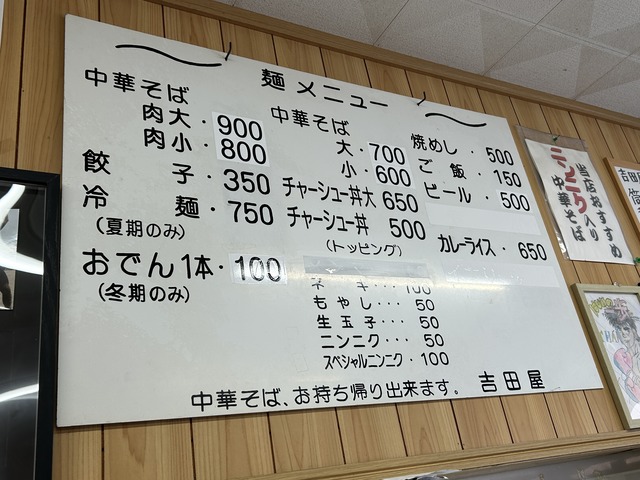 麺メニュー
中華そば
肉大・900
肉小・800
餃子・350
冷麺・750
(夏期のみ)
おでん1本・100
(冬期のみ)
中華そば
大・700
小・600
チャーシュー丼大 650
チャーシュー丼 500
(トッピング)
ネギ・・・100
もやし・・・50
生玉子・・・50
ニンニク・・・50
スペシャルニンニク・100
焼めし・500
ご飯・150
ビール・500
カレーライス・650
中華そば、お持ち帰り出来ます。 吉田屋
当店おすすめ
ニンニク入り
中華そば
吉田